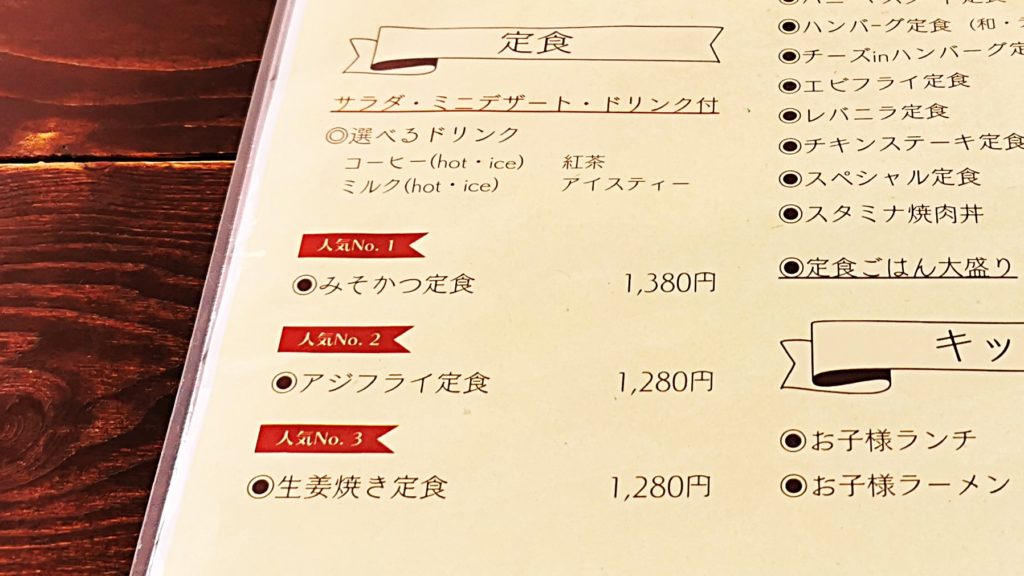 定食
サラダ・ミニデザート・ドリンク付
◎選べるドリンク
コーヒー(hot・ice) 紅茶
ミルク(hot・ice) アイスティー
人気No. 1
◉みそかつ定食 1,380円
人気No. 2
◉アジフライ定食 1,280円
人気No. 3
◉生姜焼き定食 1,280円
◉ハンバーグ定食 (和・
◉チーズinハンバーグ定
◉エビフライ定食
◉レバニラ定食
◉チキンステーキ定食
◉スペシャル定食
◉スタミナ焼肉丼
◉定食ごはん大盛り
キッ
◉お子様ランチ
◉お子様ラーメン